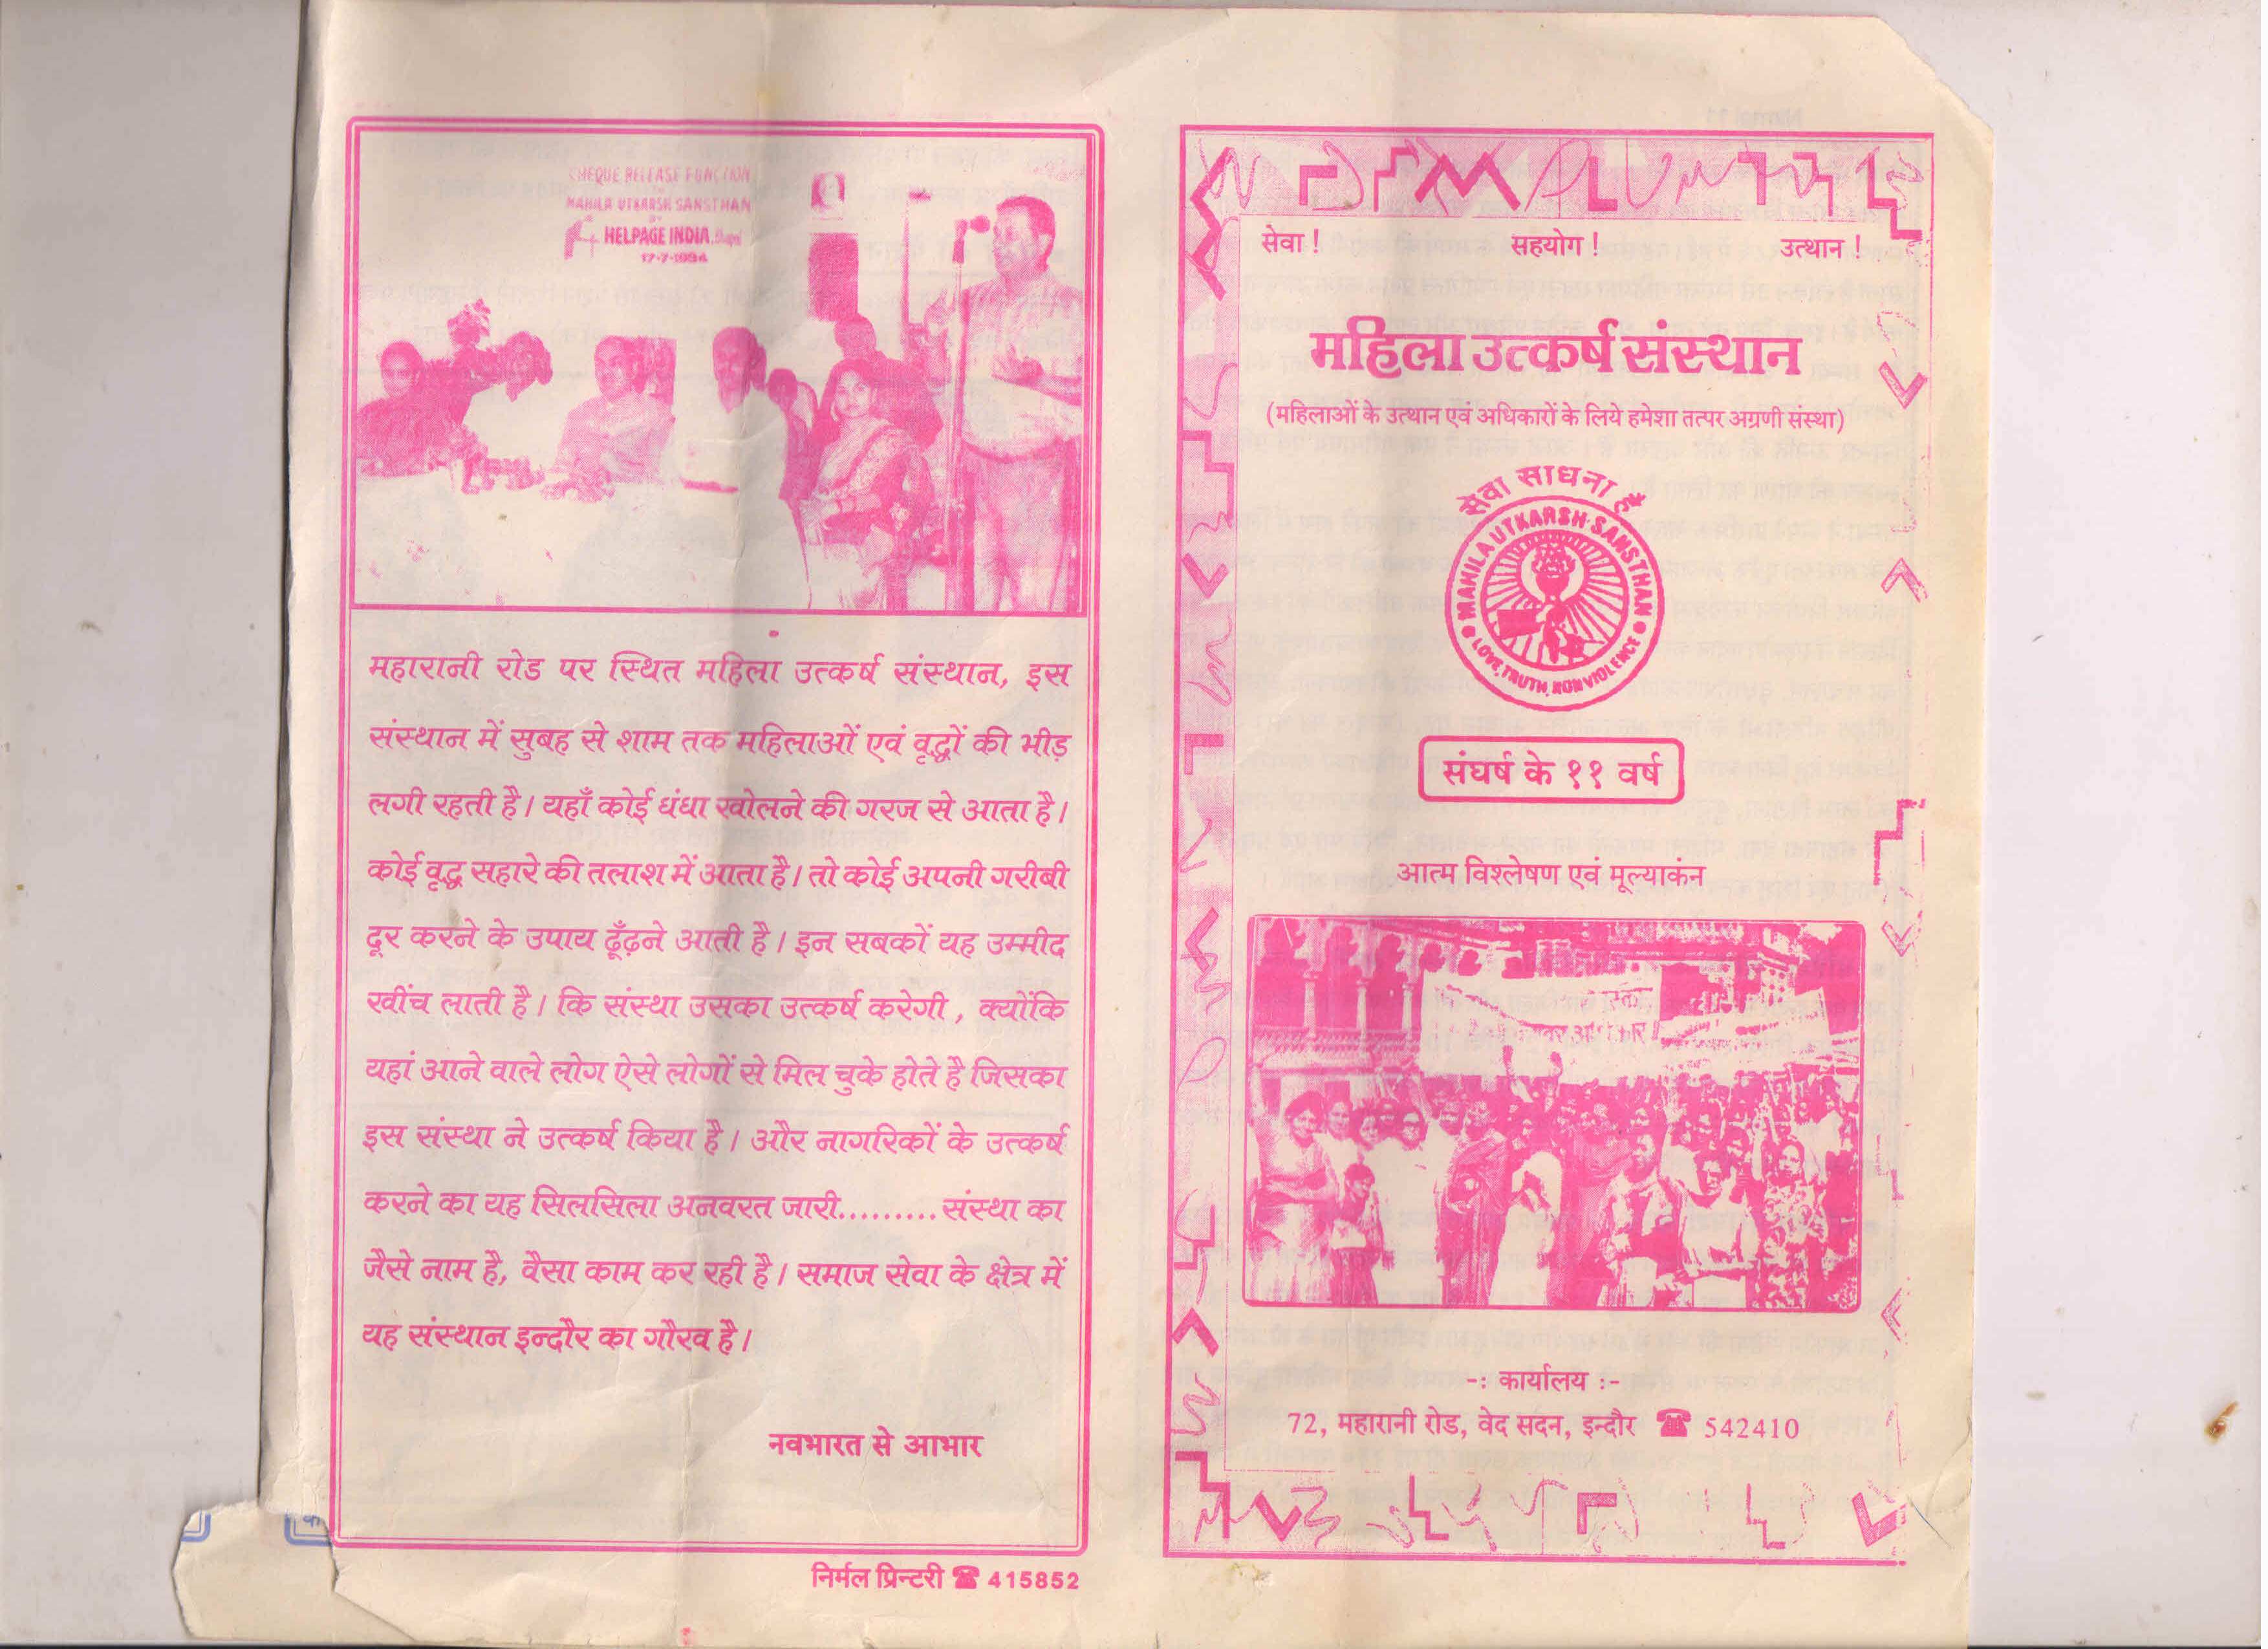 CHEQUE RELEASE FUNCTION
TO
MAHILA UTKARSH SANSTHAN
BY
HELPAGE INDIA
17-7-1994
महारानी रोड पर स्थित महिला उत्कर्ष संस्थान, इस
संस्थान में सुबह से शाम तक महिलाओं एवं वृद्धों की भीड़
लगी रहती है। यहाँ कोई धंधा खोलने की गरज से आता है।
कोई वृद्ध सहारे की तलाश में आता है। तो कोई अपनी गरीबी
दूर करने के उपाय ढूँढ़ने आती है। इन सबकों यह उम्मीद
खींच लाती है। कि संस्था उसका उत्कर्ष करेगी, क्योंकि
यहां आने वाले लोग ऐसे लोगों से मिल चुके होते है जिसका
इस संस्था ने उत्कर्ष किया है। और नागरिकों के उत्कर्ष
करने का यह सिलसिला अनवरत जारी.........संस्था का
जैसे नाम है, वैसा काम कर रही है। समाज सेवा के क्षेत्र में
यह संस्थान इन्दौर का गौरव है।
नवभारत से आभार
निर्मल प्रिन्टरी ☎ 415852
सेवा ! सहयोग ! उत्थान !
महिला उत्कर्ष संस्थान
(महिलाओं के उत्थान एवं अधिकारों के लिये हमेशा तत्पर अग्रणी संस्था)
सेवा साधना है
MAHILA UTKARSH SANSTHAN
LOVE, TRUTH, NON VIOLENCE
संघर्ष के ११ वर्ष
आत्म विश्लेषण एवं मूल्याकंन
-: कार्यालय :-
72, महारानी रोड, वेद सदन, इन्दौर ☎ 542410